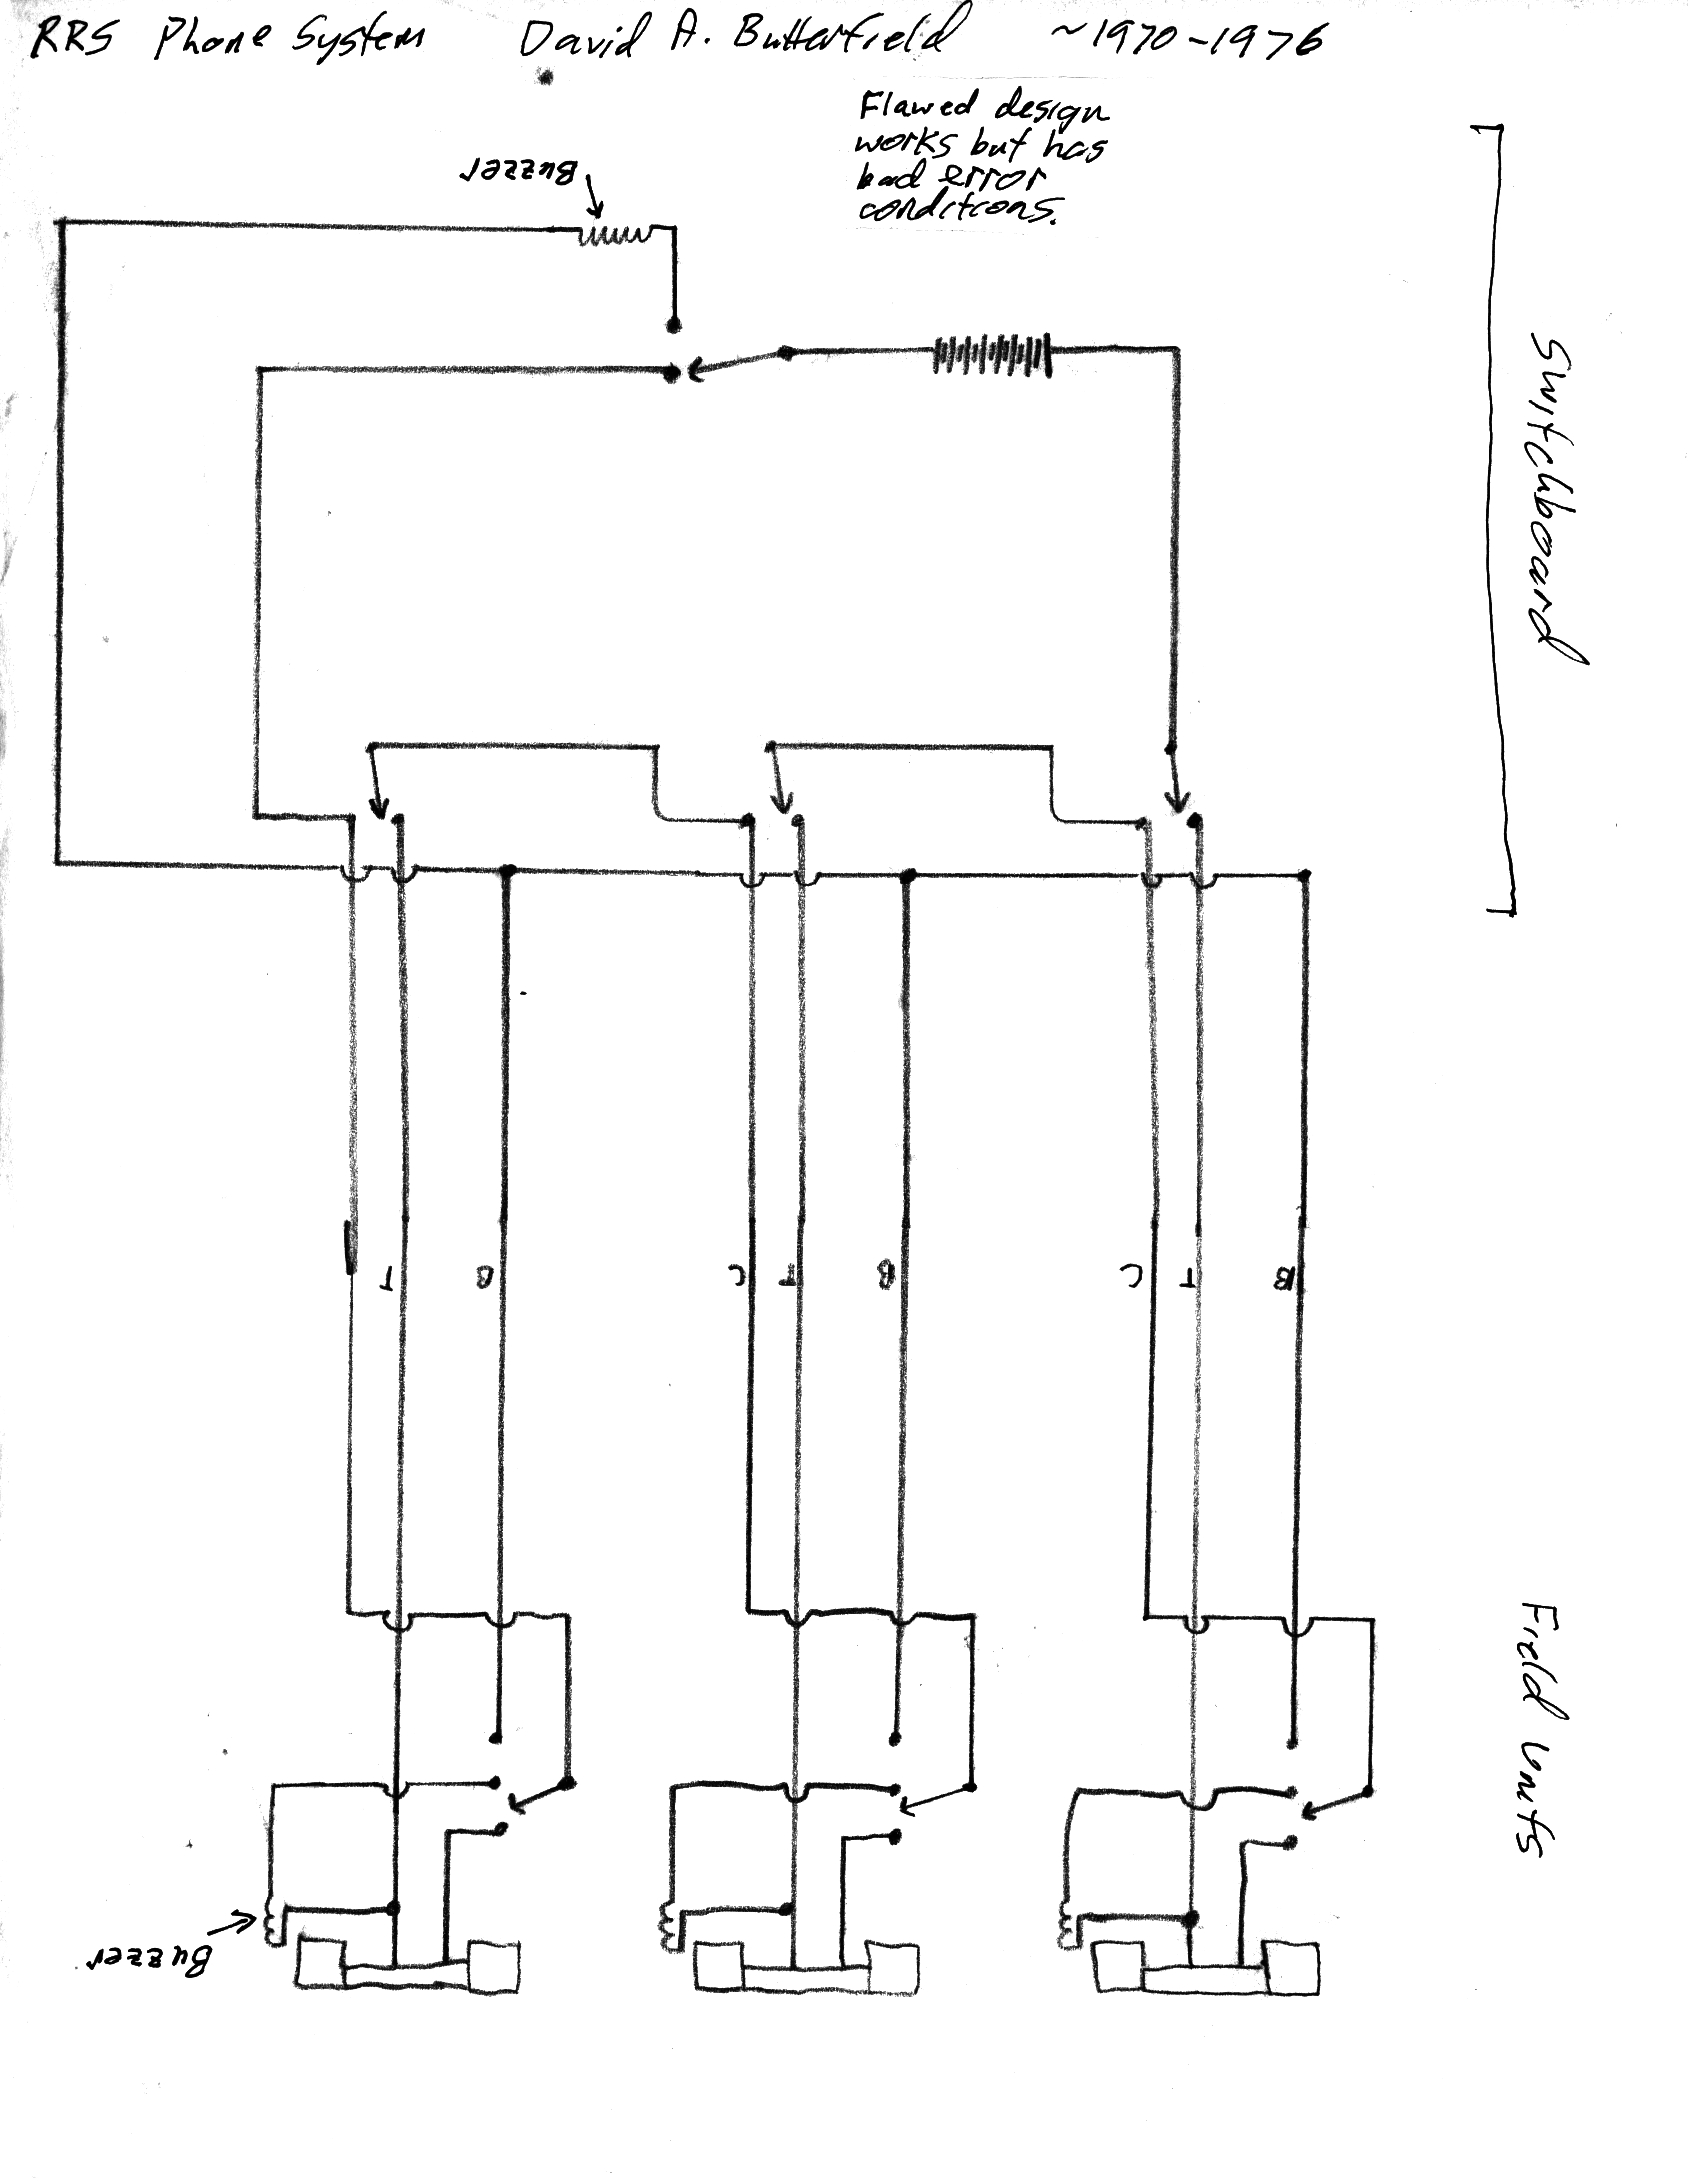 RRS Phone System David A. Butterfield ~1970-1976
Flawed design
works but has
bad error
conditions.
Buzzer
Switchboard
T B C T B C T B
Field Units
Buzzer